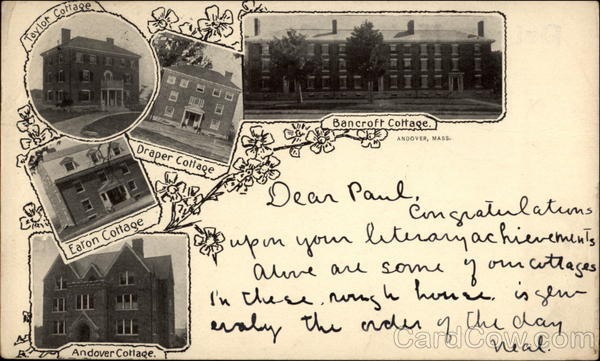 Taylor Cottage
Draper Cottage
Bancroft Cottage.
ANDOVER, MASS.
Eaton Cottage
Andover Cottage.
Dear Paul,
Congratulations
upon your literary achievements
Above are some of our cottages
In these, rough house, is gen
eraly the order of the day
Neal
CardCow.com